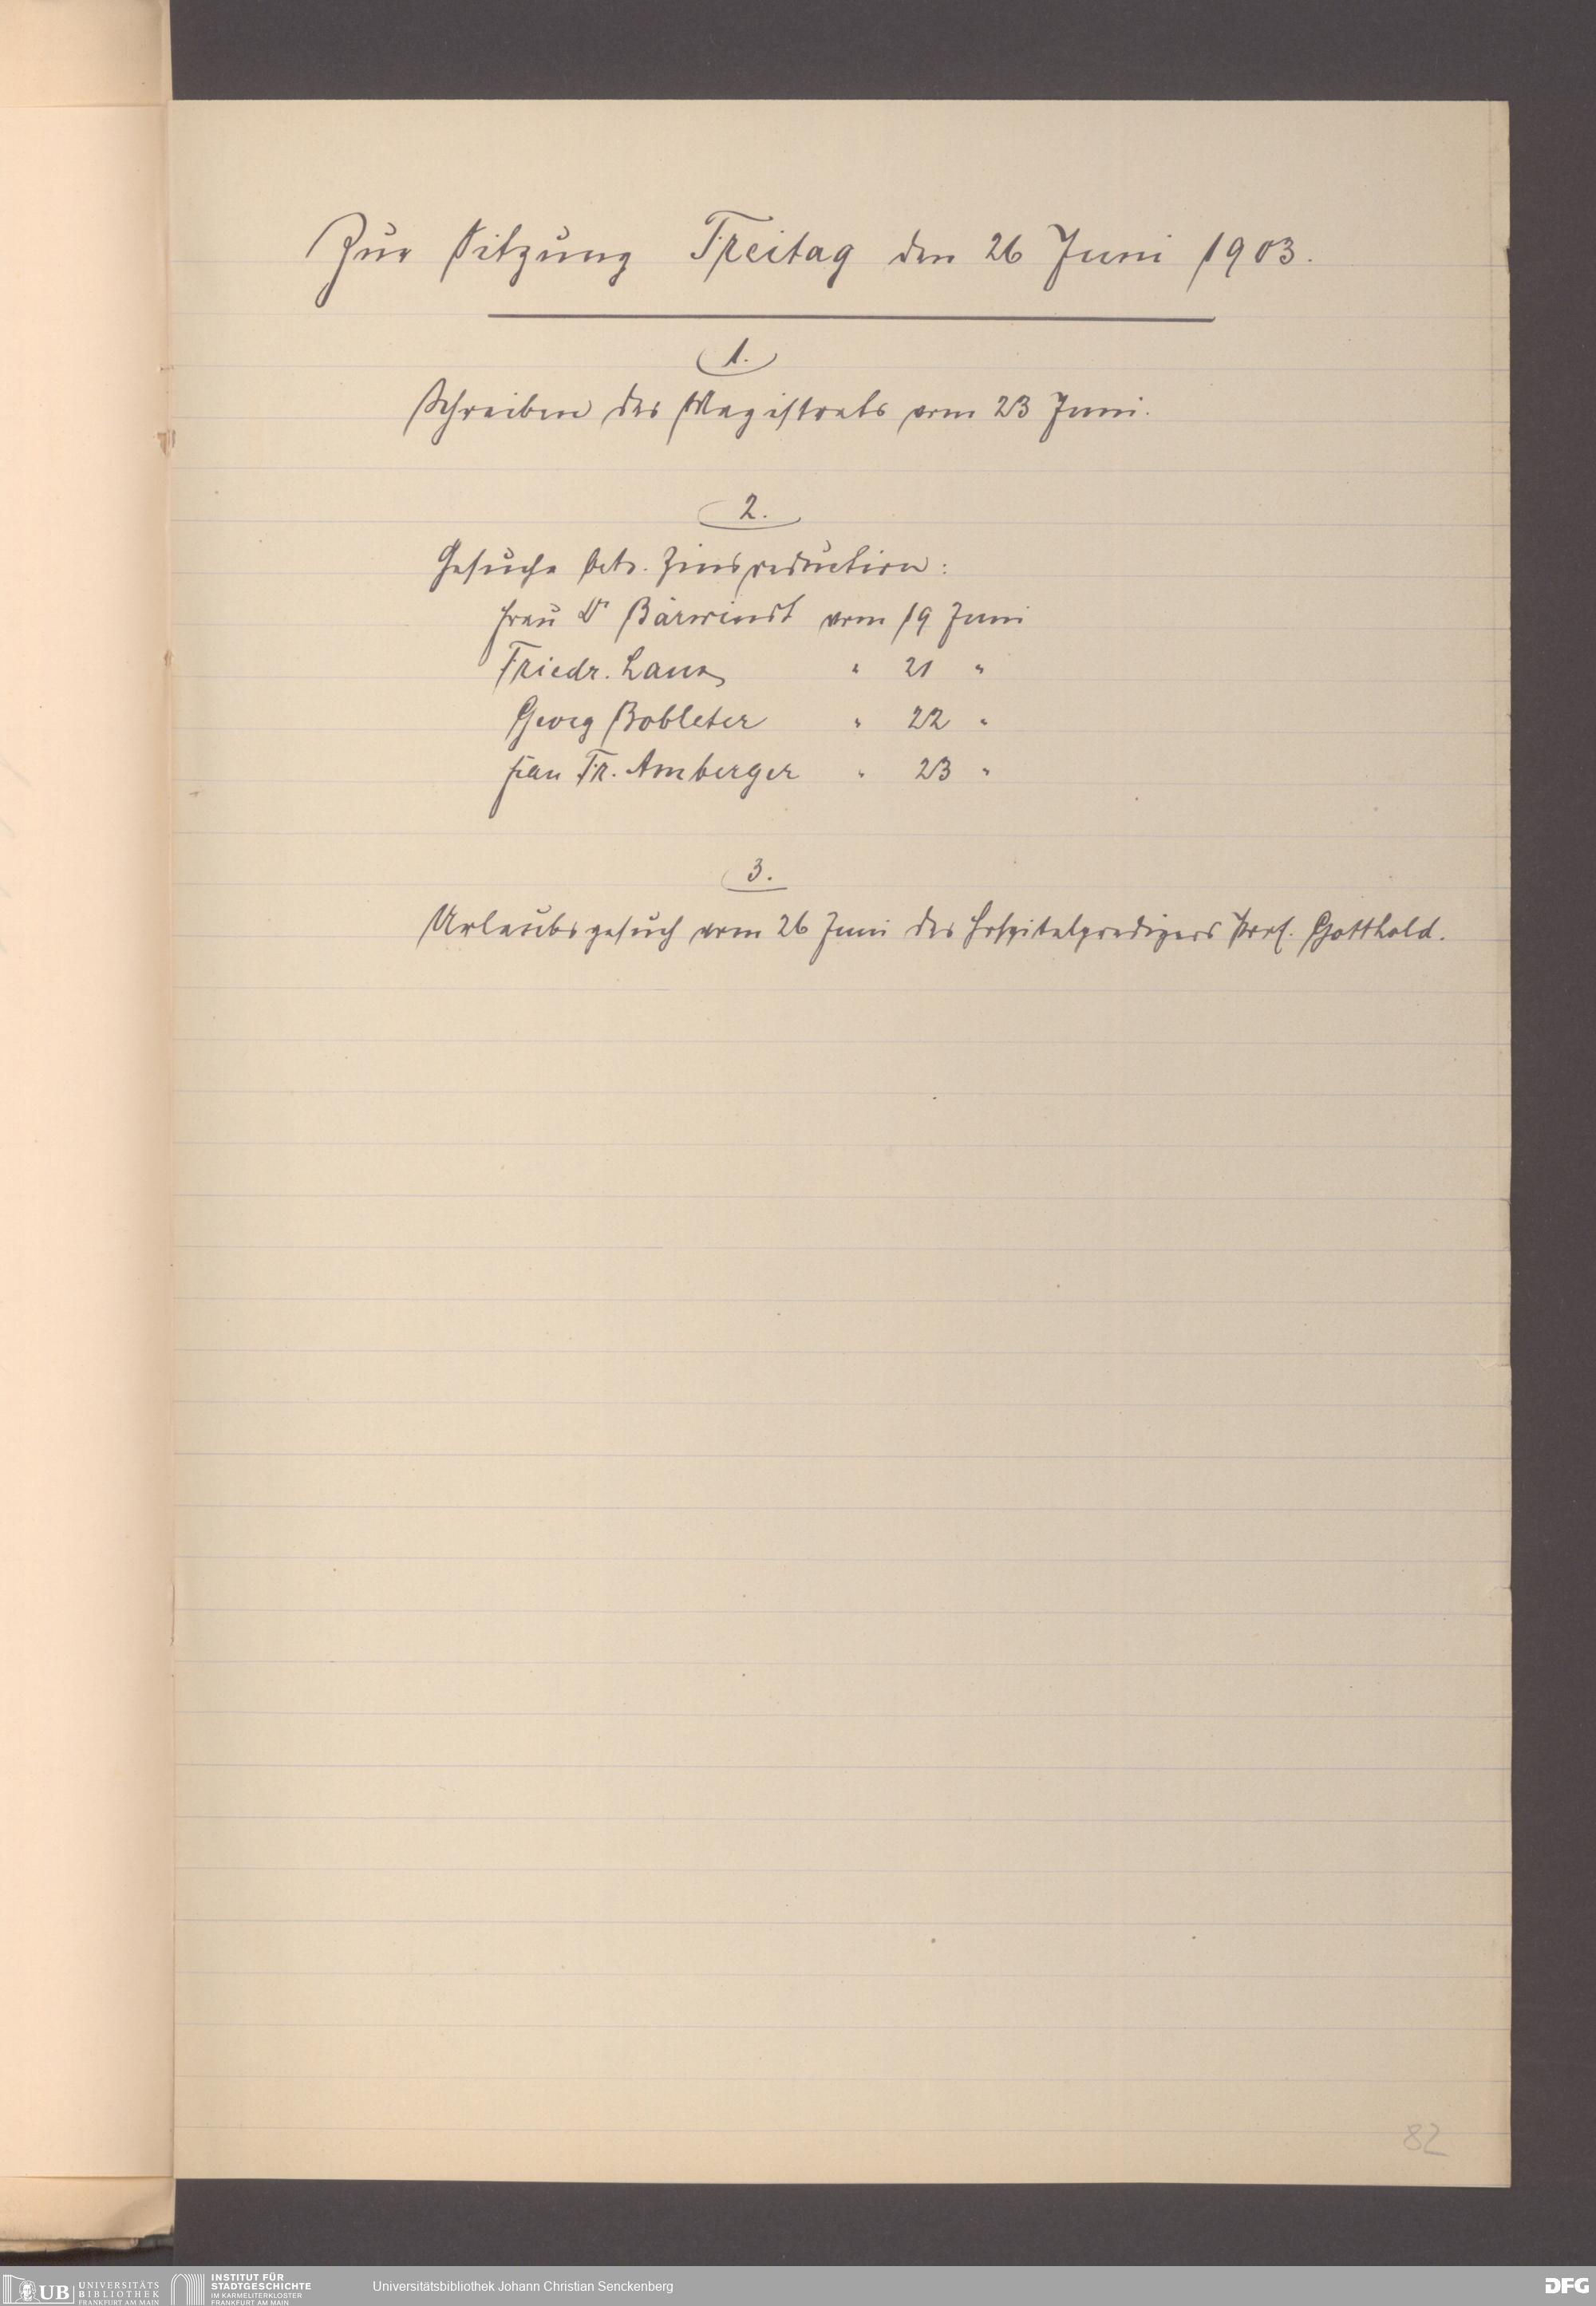 Zur Sitzung Freitag den 26 Juni 1903.
1.
Schreiben des Magistrats vom 23 Juni.
2.
Gesuche betr. Zinsreduction:
Frau Dr Bärwindt vom 19 Juni
Friedr. Lanz " 21 "
Georg Bobleter " 22 "
Frau Fr. Amberger " 23 "
3.
Urlaubsgesuch vom 26 Juni des Hospitalpredigers Prof. Gotthold.
82
UB UNIVERSITÄTS BIBLIOTHEK FRANKFURT AM MAIN
INSTITUT FÜR STADTGESCHICHTE IM KARMELITERKLOSTER FRANKFURT AM MAIN
Universitätsbibliothek Johann Christian Senckenberg
DFG